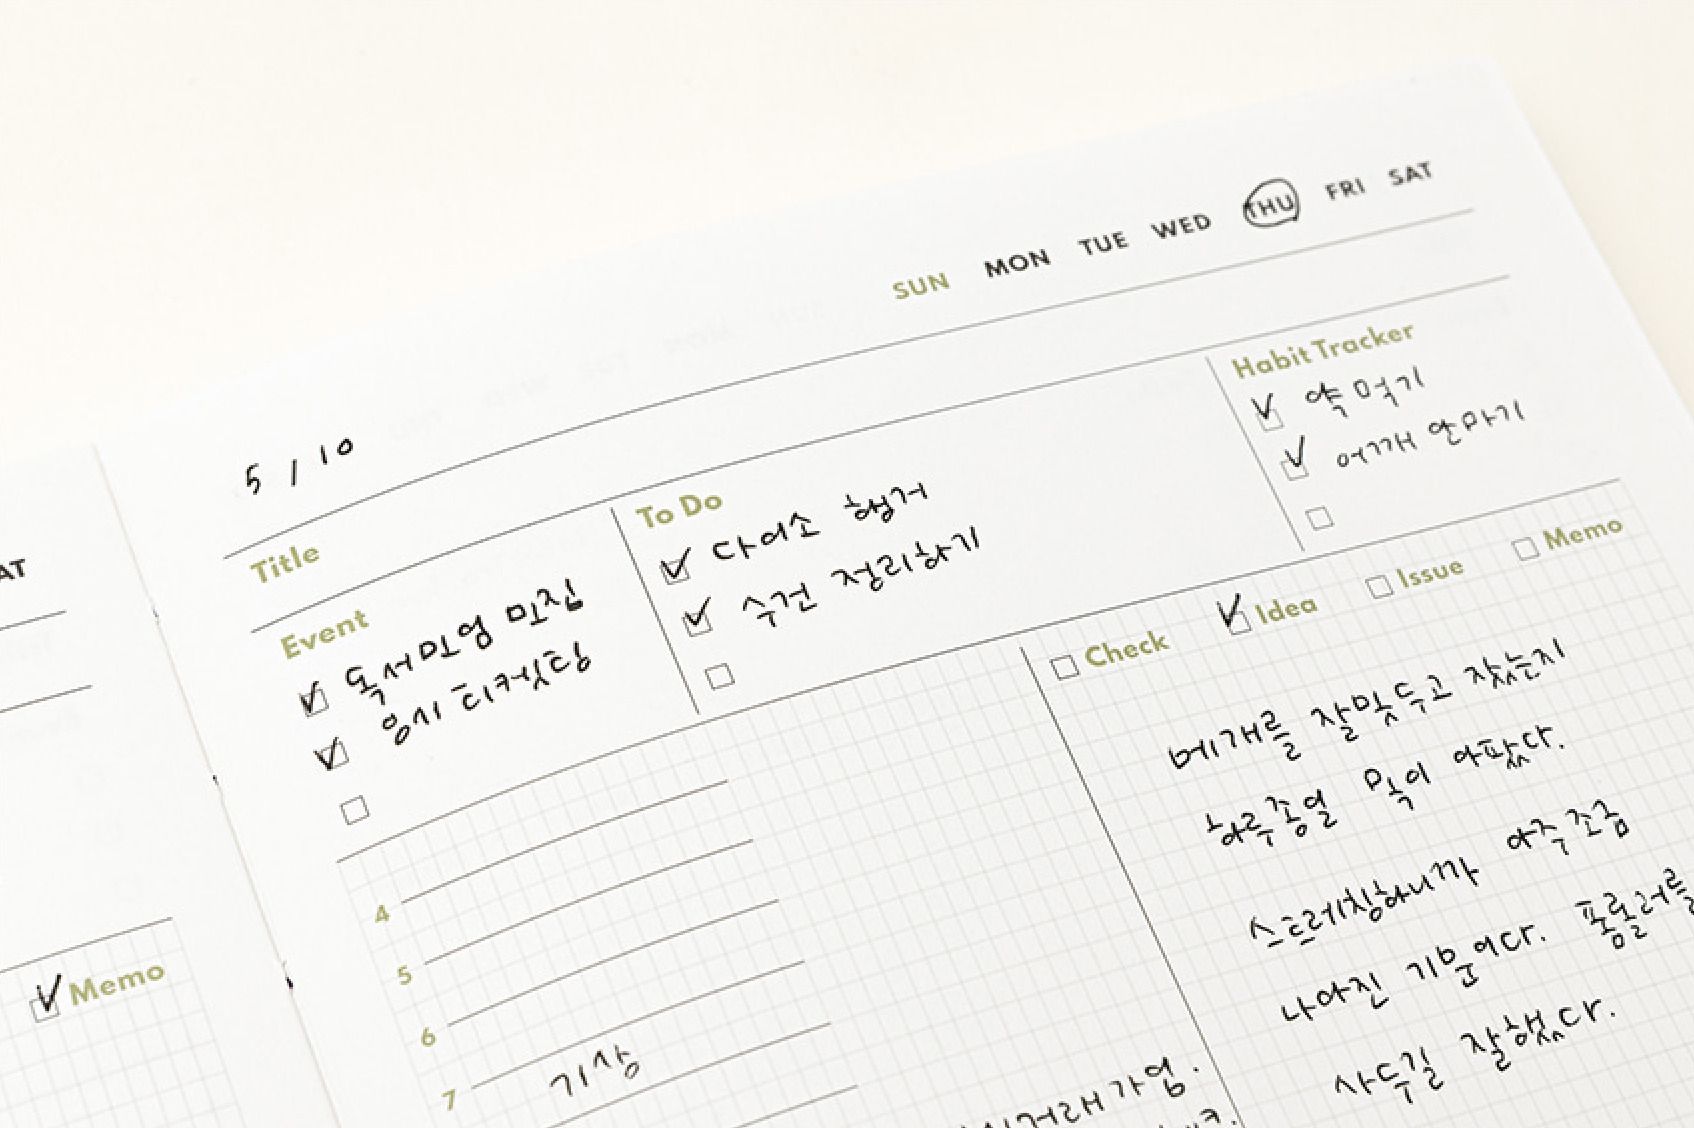 SUN MON TUE WED THU FRI SAT
5 / 10
Title
Event
독서모임 모집
응시 티켓팅
To Do
다이소 행거
수건 정리하기
Habit Tracker
약 먹기
어깨 안마기
Check Idea Issue Memo
베개를 잘못 두고 잤는지
하루종일 목이 아팠다.
스트레칭하니까 아주조금
나아진 기분이다. 폼롤러를
사두길 잘했다.
4
5
6
7 기상
AT
Memo